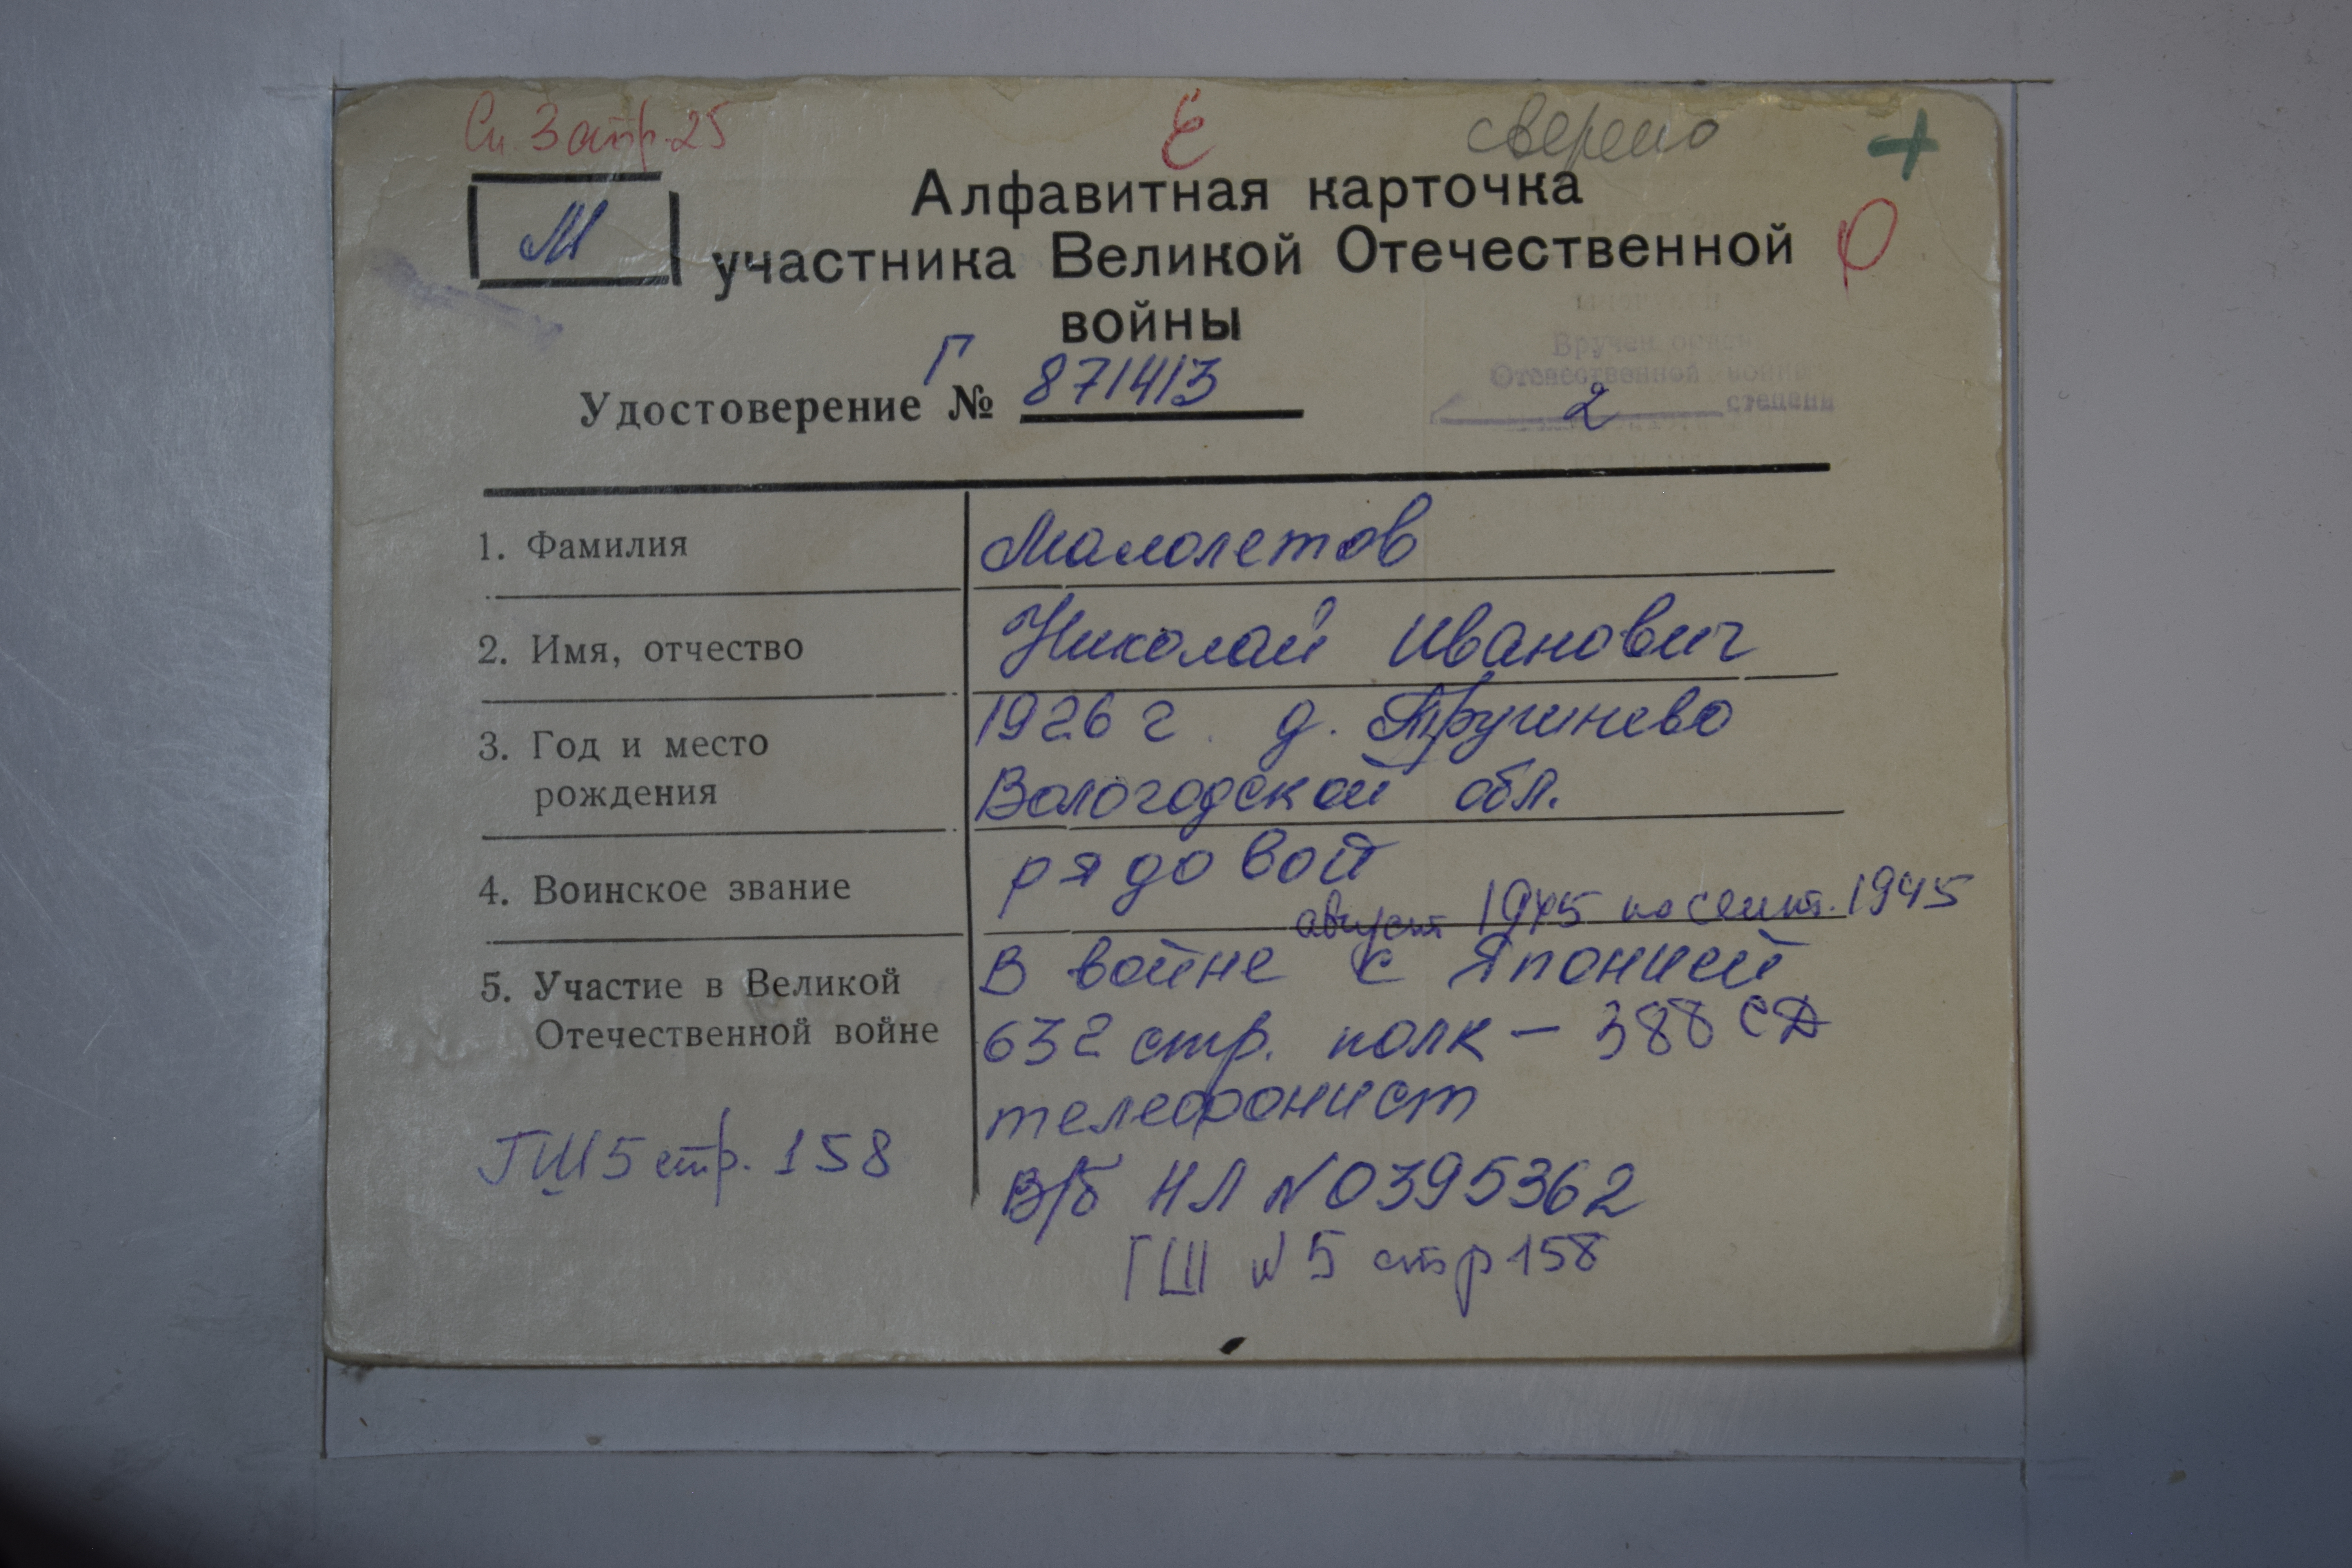 Сп. 3 стр. 25
сверено
+
М
Алфавитная карточка
участника Великой Отечественной
войны
Удостоверение Г № 871413
Вручен орден
Отечественной войны
2 степени
1. Фамилия
Малолетов
2. Имя, отчество
Николай Иванович
3. Год и место
рождения
1926 г. д.
Вологодской обл.
4. Воинское звание
рядовой
август 1945 по сент. 1945
5. Участие в Великой
Отечественной войне
В войне с Японией
632 стр. полк — 388 СД
телефонист
В/б НЛ №0395362
ГШ 5 стр. 158
ГШ №5 стр 158